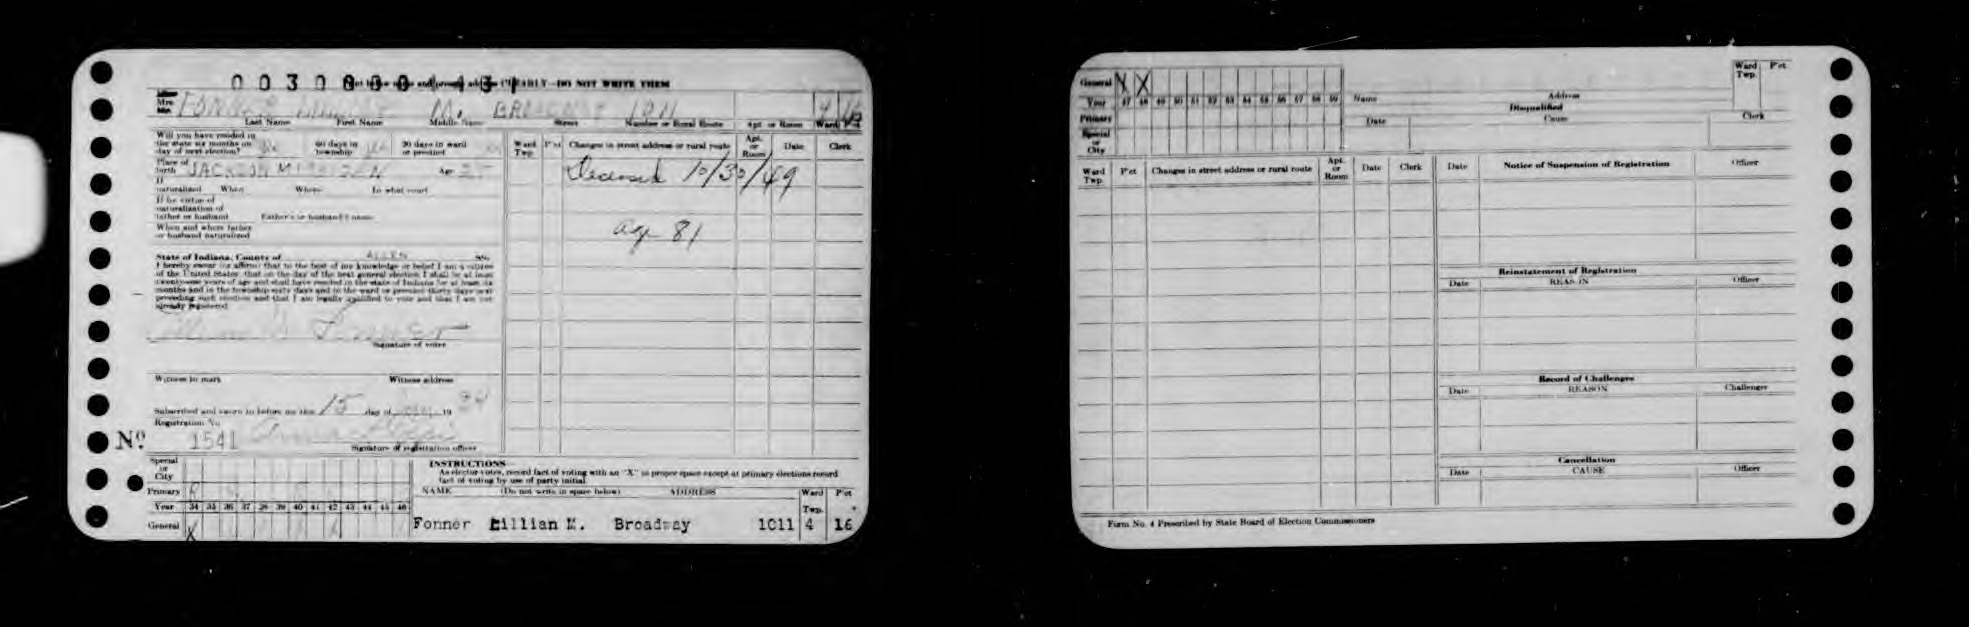 0030000443
CLEARLY—DO NOT WRITE THEM
Mrs. FONNER M. BROADWAY 1011 4 16
Last Name First Name Middle Name Street Number or Rural Route Apt. or Room Ward Pct
Will you have resided in
the state six months on 60 days in 30 days in ward
day of next election? township or precinct
Place of
birth JACKSON Age
If
naturalized When Where In what court
If by virtue of
naturalization of
father or husband Father's or husband's name
When and where father
or husband naturalized
State of Indiana, County of ALLEN SS:
I hereby swear (or affirm) that to the best of my knowledge or belief I am a citizen
of the United States, that on the day of the next general election I shall be at least
twenty-one years of age and shall have resided in the state of Indiana for at least six
months and in the township sixty days and in the ward or precinct thirty days next
preceding such election and that I am legally qualified to vote and that I am not
already registered.
Signature of voter
Witness to mark Witness address
Subscribed and sworn to before me this 15 day of 19 34
Registration No.
No 1541
Signature of registration officer
Ward Twp. P'ct Changes in street address or rural route Apt. or Room Date Clerk
Deceased 10/30/49
age 81
Special
or
City
Primary R
Year 34 35 36 37 38 39 40 41 42 43 44 45 46
General X
INSTRUCTIONS
As elector votes, record fact of voting with an "X" in proper space except at primary elections record
fact of voting by use of party initial.
NAME (Do not write in space below) ADDRESS Ward Twp. P'ct
Fonner Lillian M. Broadway 1011 4 16
General X X
Year 47 48 49 50 51 52 53 54 55 56 57 58 59
Primary
Special
or
City
Name Address Ward Twp. P'ct
Disqualified
Date Cause Clerk
Ward Twp. P'ct Changes in street address or rural route Apt. or Room Date Clerk
Date Notice of Suspension of Registration Officer
Reinstatement of Registration
Date REASON Officer
Record of Challenges
Date REASON Challenger
Cancellation
Date CAUSE Officer
Form No. 4 Prescribed by State Board of Election Commissioners